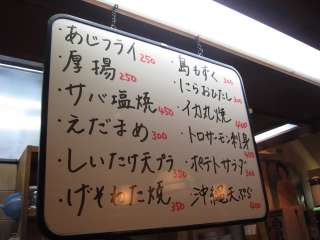 ・あじフライ 250
・厚揚 250
・サバ塩焼 450
・えだまめ 300
・しいたけ天プラ 350
・げそわた焼 350
・島もずく 300
・にらおひたし 300
・イカ丸焼 400
・トロサーモン刺身
・ポテトサラダ 300
・沖縄天ぷら 400